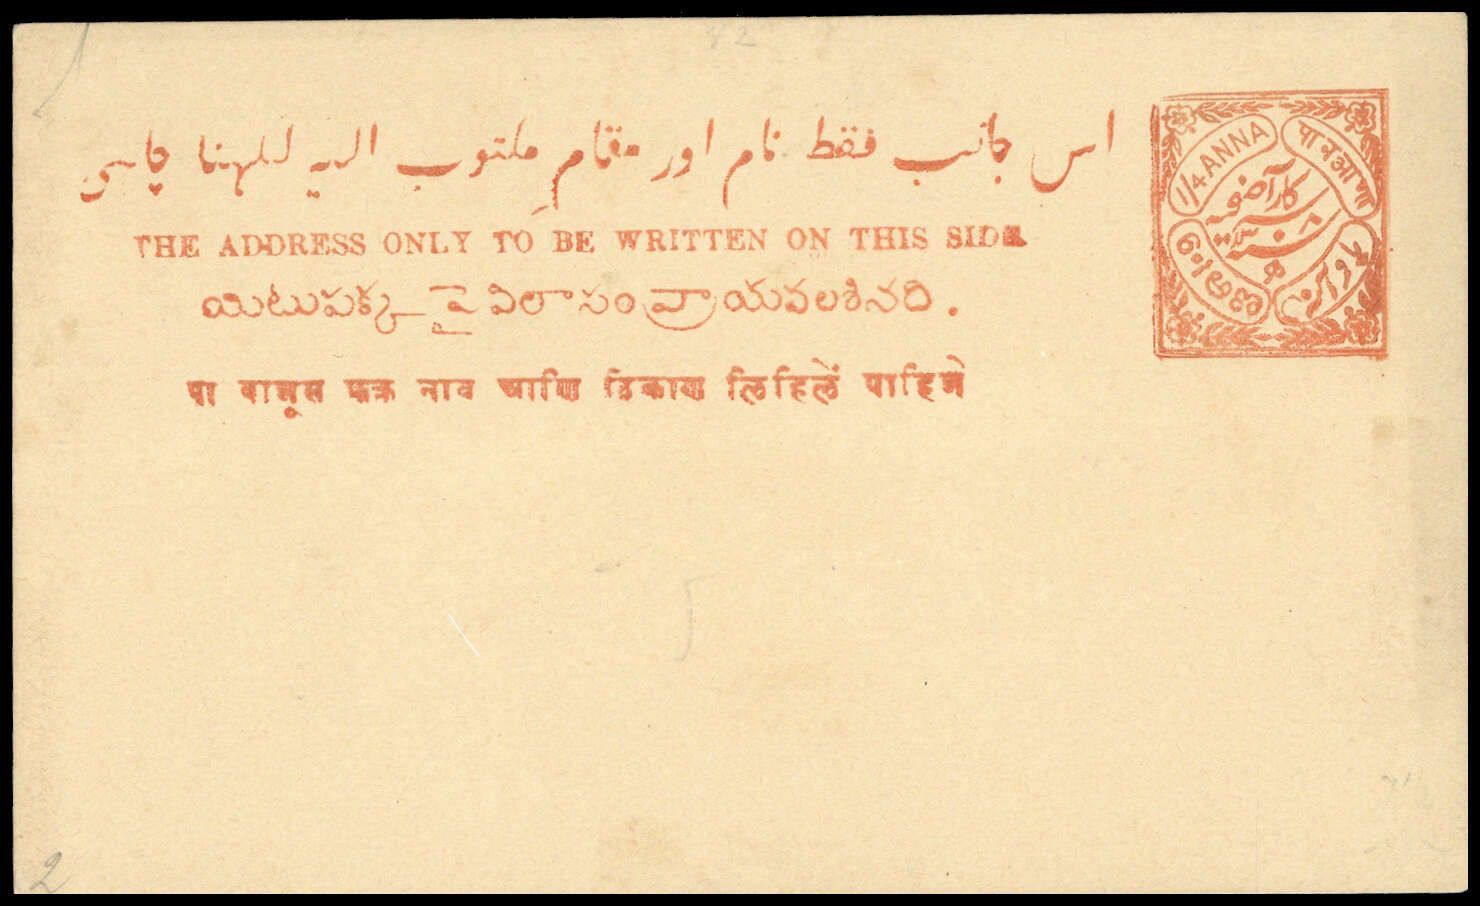 اس جانب فقط نام اور مقام مکتوب الیہ لکہنا چاہئے
THE ADDRESS ONLY TO BE WRITTEN ON THIS SIDE
యిటుపక్క పై విలాసం వ్రాయవలశినది.
या बाजूस फक्त नाव आणि ठिकाण लिहिलें पाहिजे
1/4 ANNA
पाव आणा
پاو آنہ
2